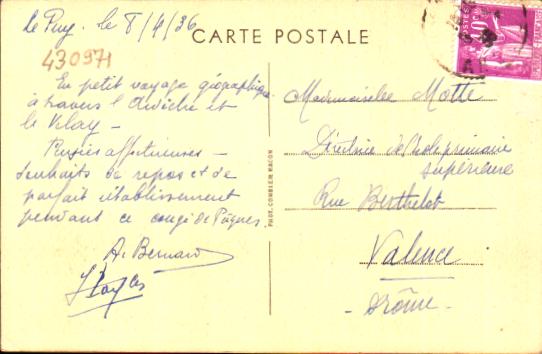 Le Puy, le 8/4/36
CARTE POSTALE
430971
En petit voyage géographique
à travers l'Ardèche et
le Velay -
Pensées affectueuses -
souhaits de repos et de
parfait rétablissement
pendant ce congé de Pâques.
A. Bernard
PHOT. COMBIER MACON
Mademoiselle Motte
Directrice de l'école primaire
supérieure
Rue Berthelot
Valence
- Drôme -